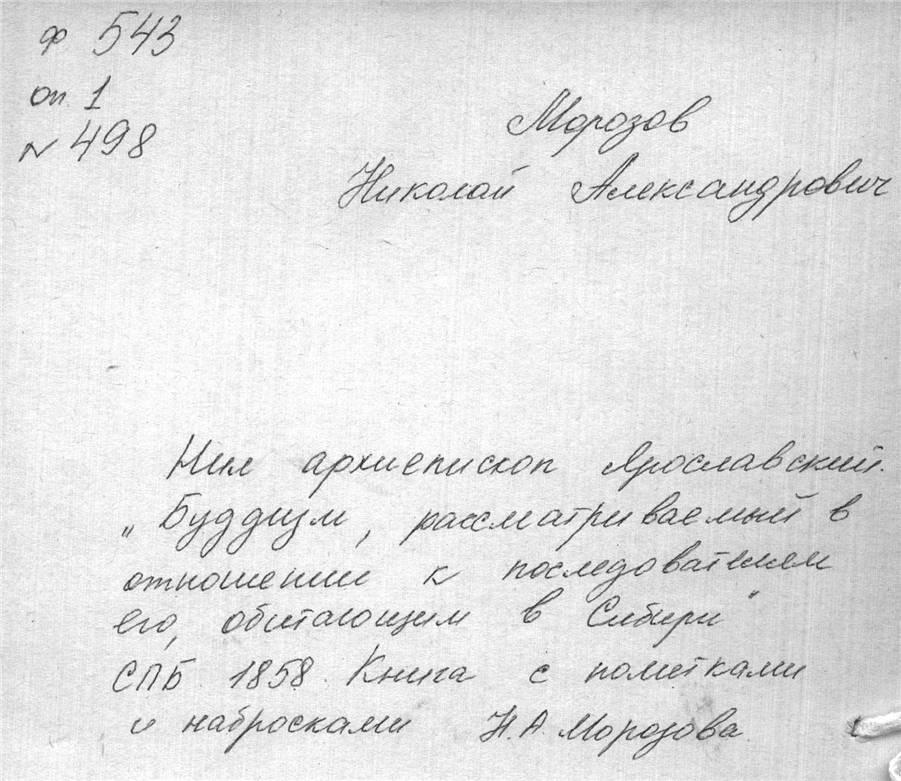 ф 543
оп. 1
N 498
Морозов
Николай Александрович
Нил архиепископ Ярославский.
„Буддизм, рассматриваемый в
отношении к последователем
его, обитающим в Сибири"
СПБ. 1858. Книга с пометками
и набросками Н.А. Морозова.